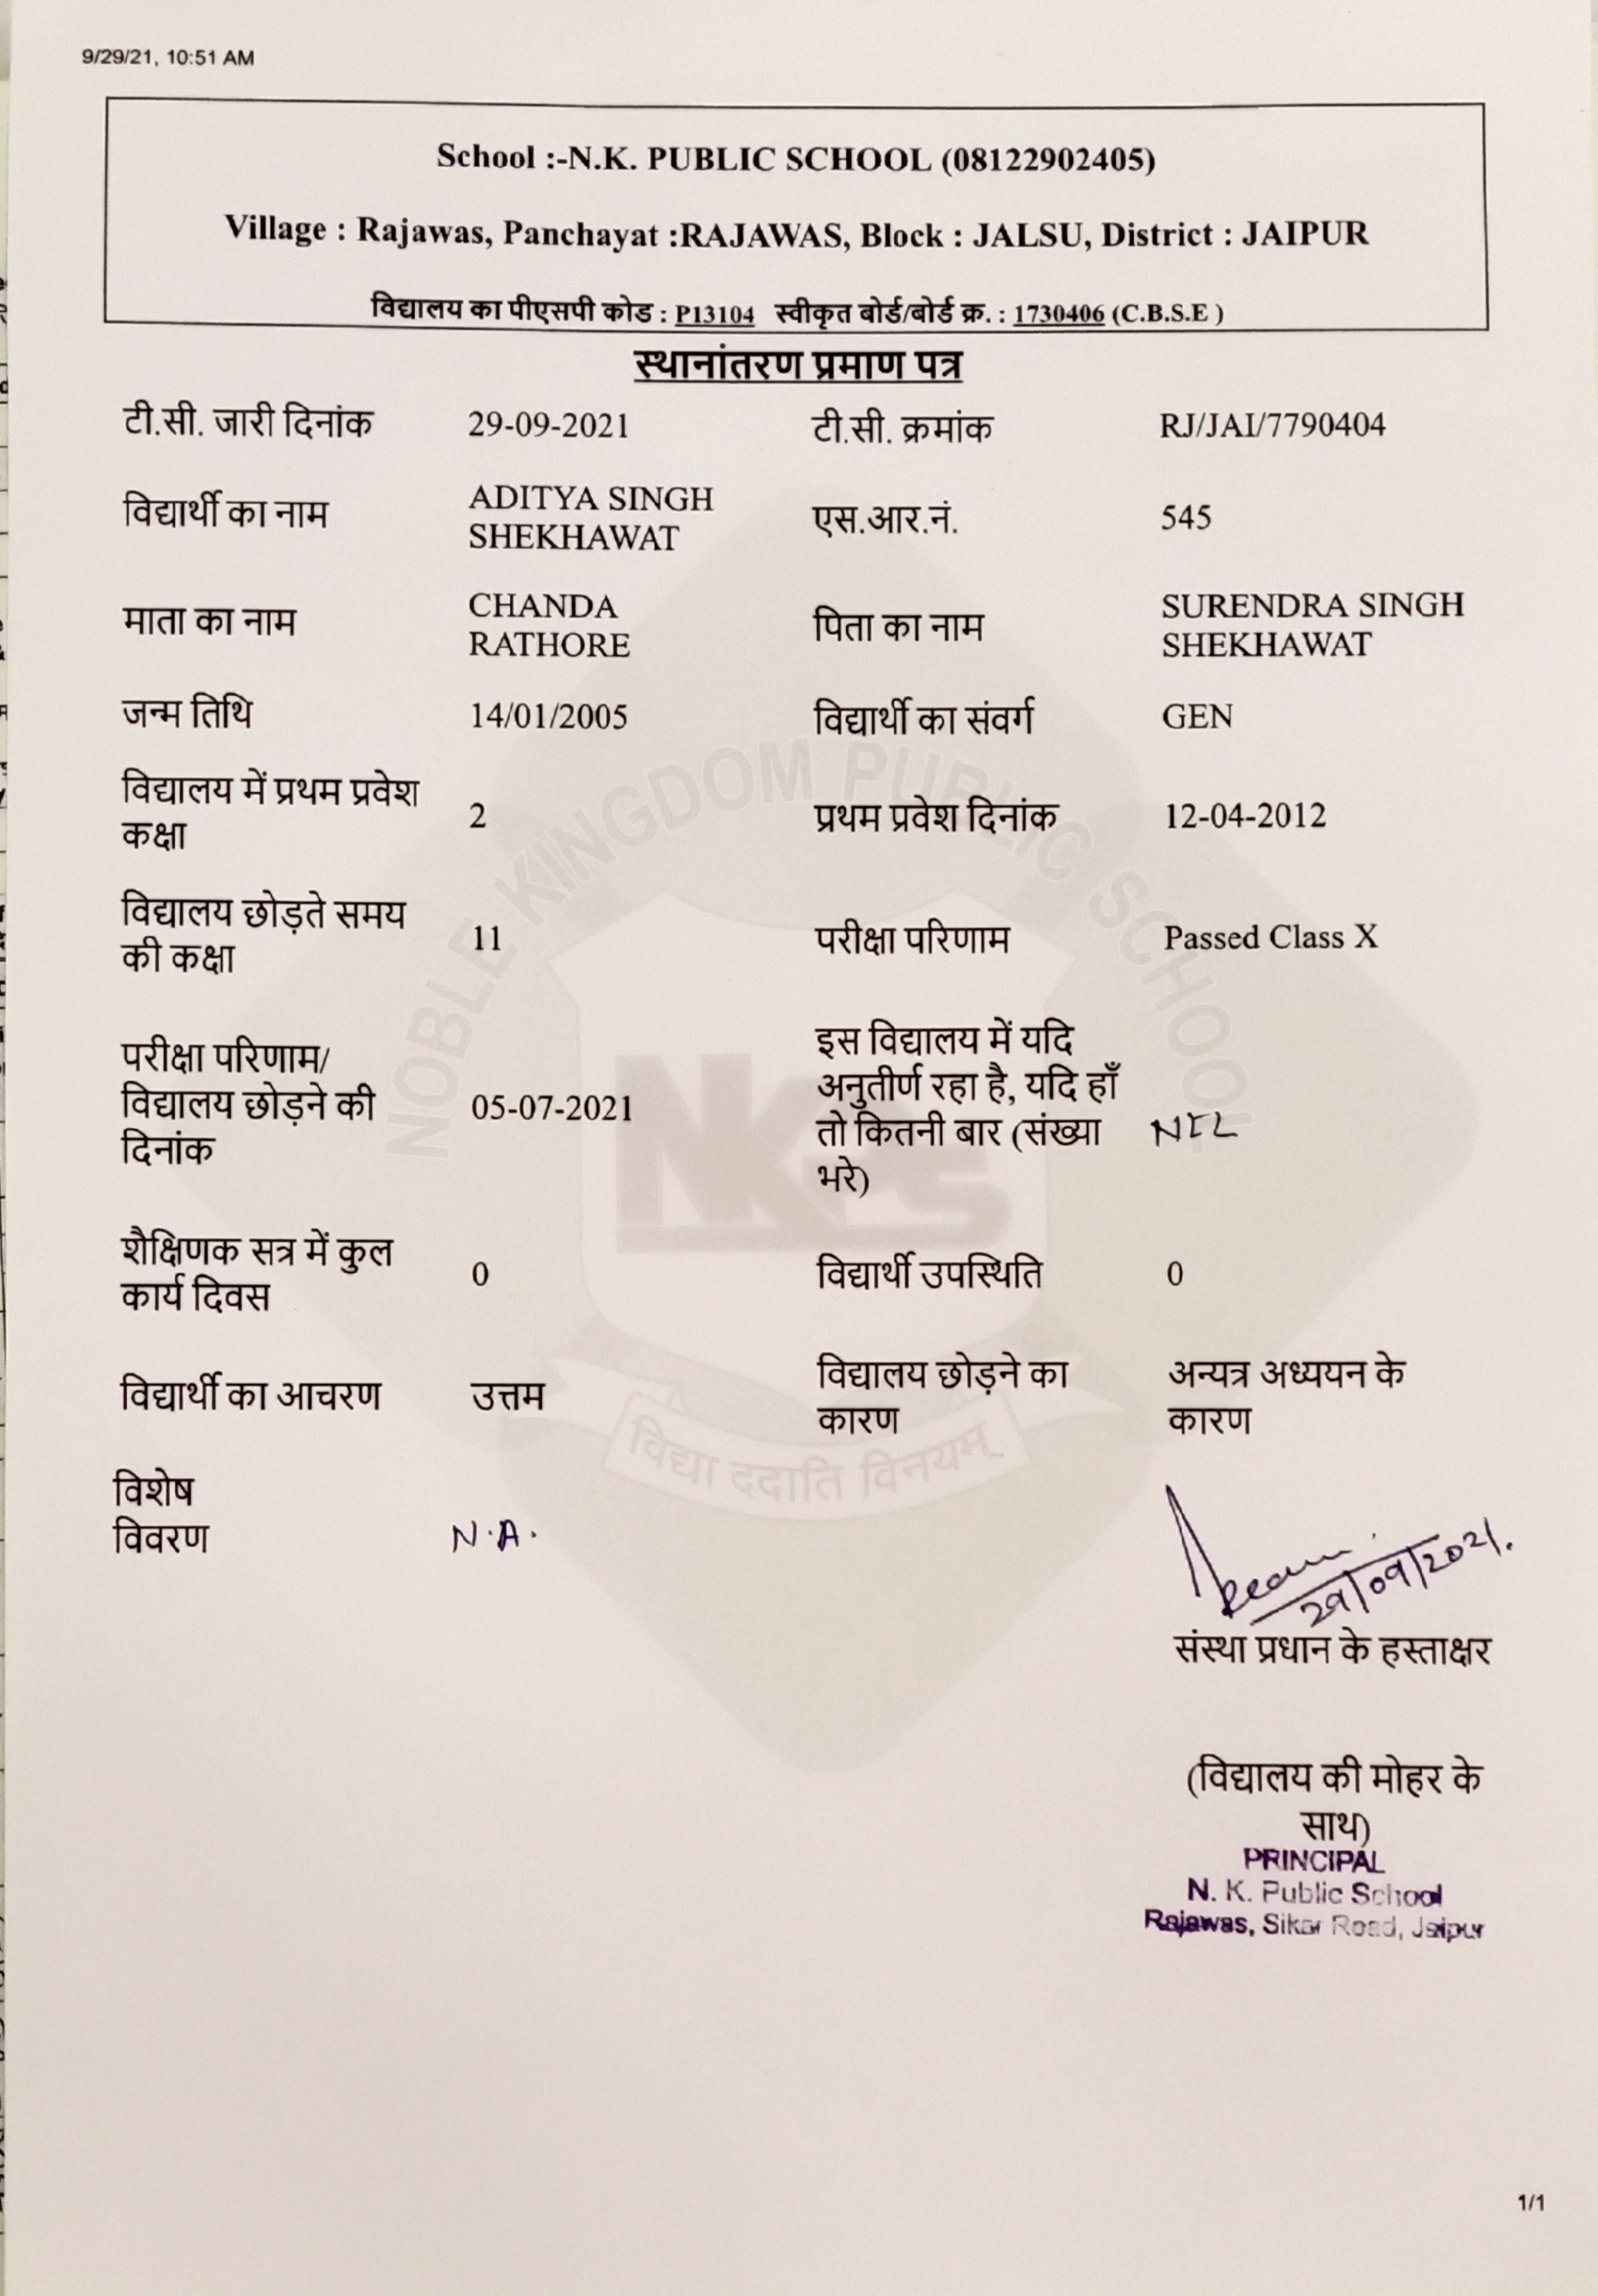 9/29/21, 10:51 AM
School :-N.K. PUBLIC SCHOOL (08122902405)
Village : Rajawas, Panchayat :RAJAWAS, Block : JALSU, District : JAIPUR
विद्यालय का पीएसपी कोड : P13104 स्वीकृत बोर्ड/बोर्ड क्र. : 1730406 (C.B.S.E )
स्थानांतरण प्रमाण पत्र
टी.सी. जारी दिनांक 29-09-2021 टी.सी. क्रमांक RJ/JAI/7790404
विद्यार्थी का नाम ADITYA SINGH
SHEKHAWAT एस.आर.नं. 545
माता का नाम CHANDA
RATHORE पिता का नाम SURENDRA SINGH
SHEKHAWAT
जन्म तिथि 14/01/2005 विद्यार्थी का संवर्ग GEN
विद्यालय में प्रथम प्रवेश
कक्षा 2 प्रथम प्रवेश दिनांक 12-04-2012
विद्यालय छोड़ते समय
की कक्षा 11 परीक्षा परिणाम Passed Class X
परीक्षा परिणाम/
विद्यालय छोड़ने की
दिनांक 05-07-2021
इस विद्यालय में यदि
अनुतीर्ण रहा है, यदि हाँ
तो कितनी बार (संख्या
भरे) NIL
शैक्षिणक सत्र में कुल
कार्य दिवस 0 विद्यार्थी उपस्थिति 0
विद्यार्थी का आचरण उत्तम
विद्यालय छोड़ने का
कारण
अन्यत्र अध्ययन के
कारण
विशेष
विवरण N.A.
29/09/2021.
संस्था प्रधान के हस्ताक्षर
(विद्यालय की मोहर के
साथ)
PRINCIPAL
N. K. Public School
Rajawas, Sikar Road, Jaipur
NOBLE KINGDOM PUBLIC SCHOOL
NKPS
विद्या ददाति विनयम्
1/1